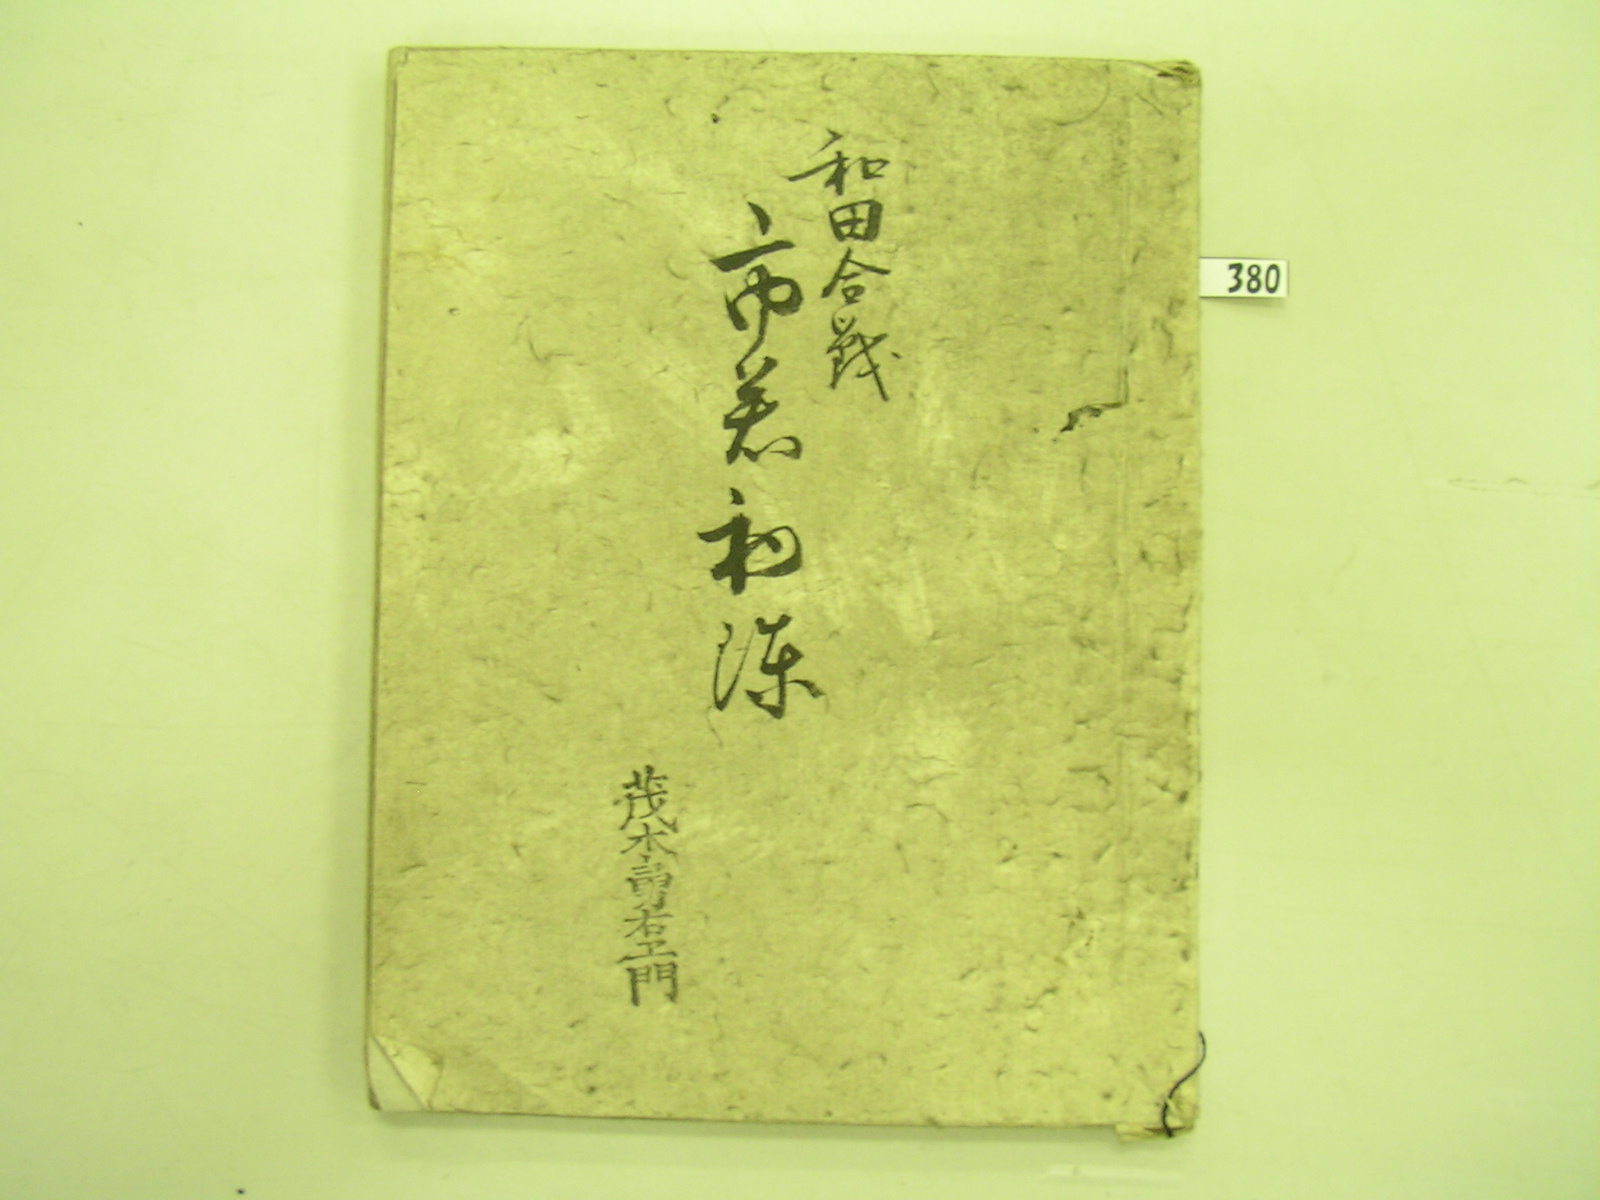 和田合戦
市若初陳
茂木高右エ門
380